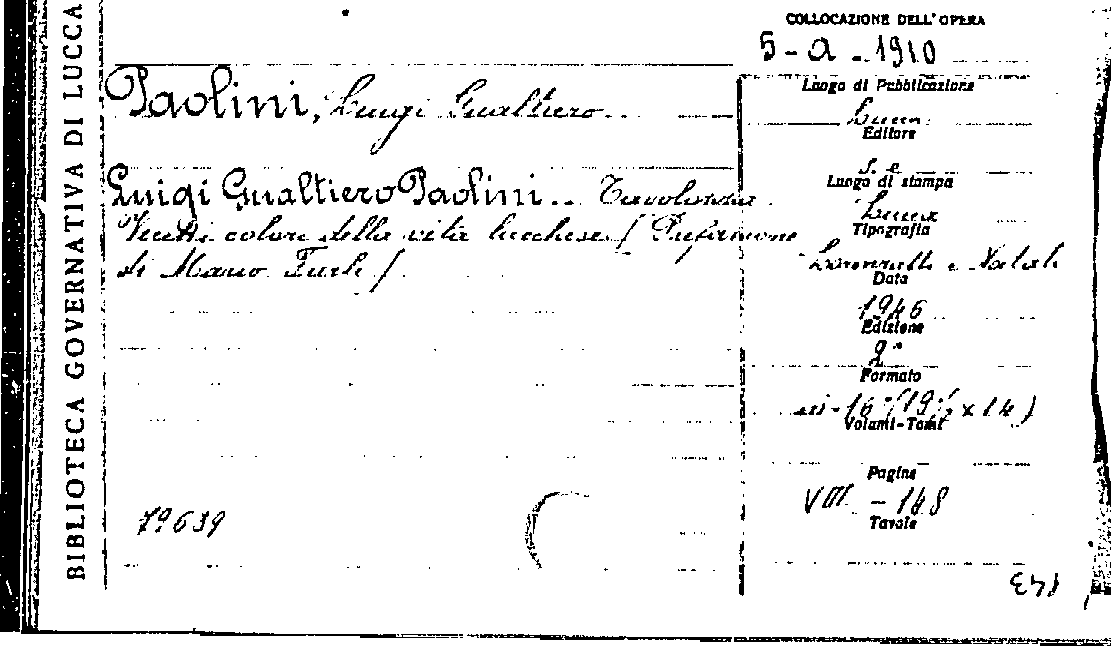 BIBLIOTECA GOVERNATIVA DI LUCCA
COLLOCAZIONE DELL'OPERA
5-a-1910
Paolini, Luigi Gualtiero
Luigi Gualtiero Paolini.. Tavolozza.
Vecchi colori della vita lucchese / Prefazione
di Mario Tuchi /
79639
Luogo di Pubblicazione
Lucca
Editore
s. e.
Luogo di stampa
Lucca
Tipografia
Lorenzetti e Natali
Data
1946
Edizione
2ª
Formato
in-16° (19½ x 14)
Volumi-Tomi
Pagine
VIII - 148
Tavole
143